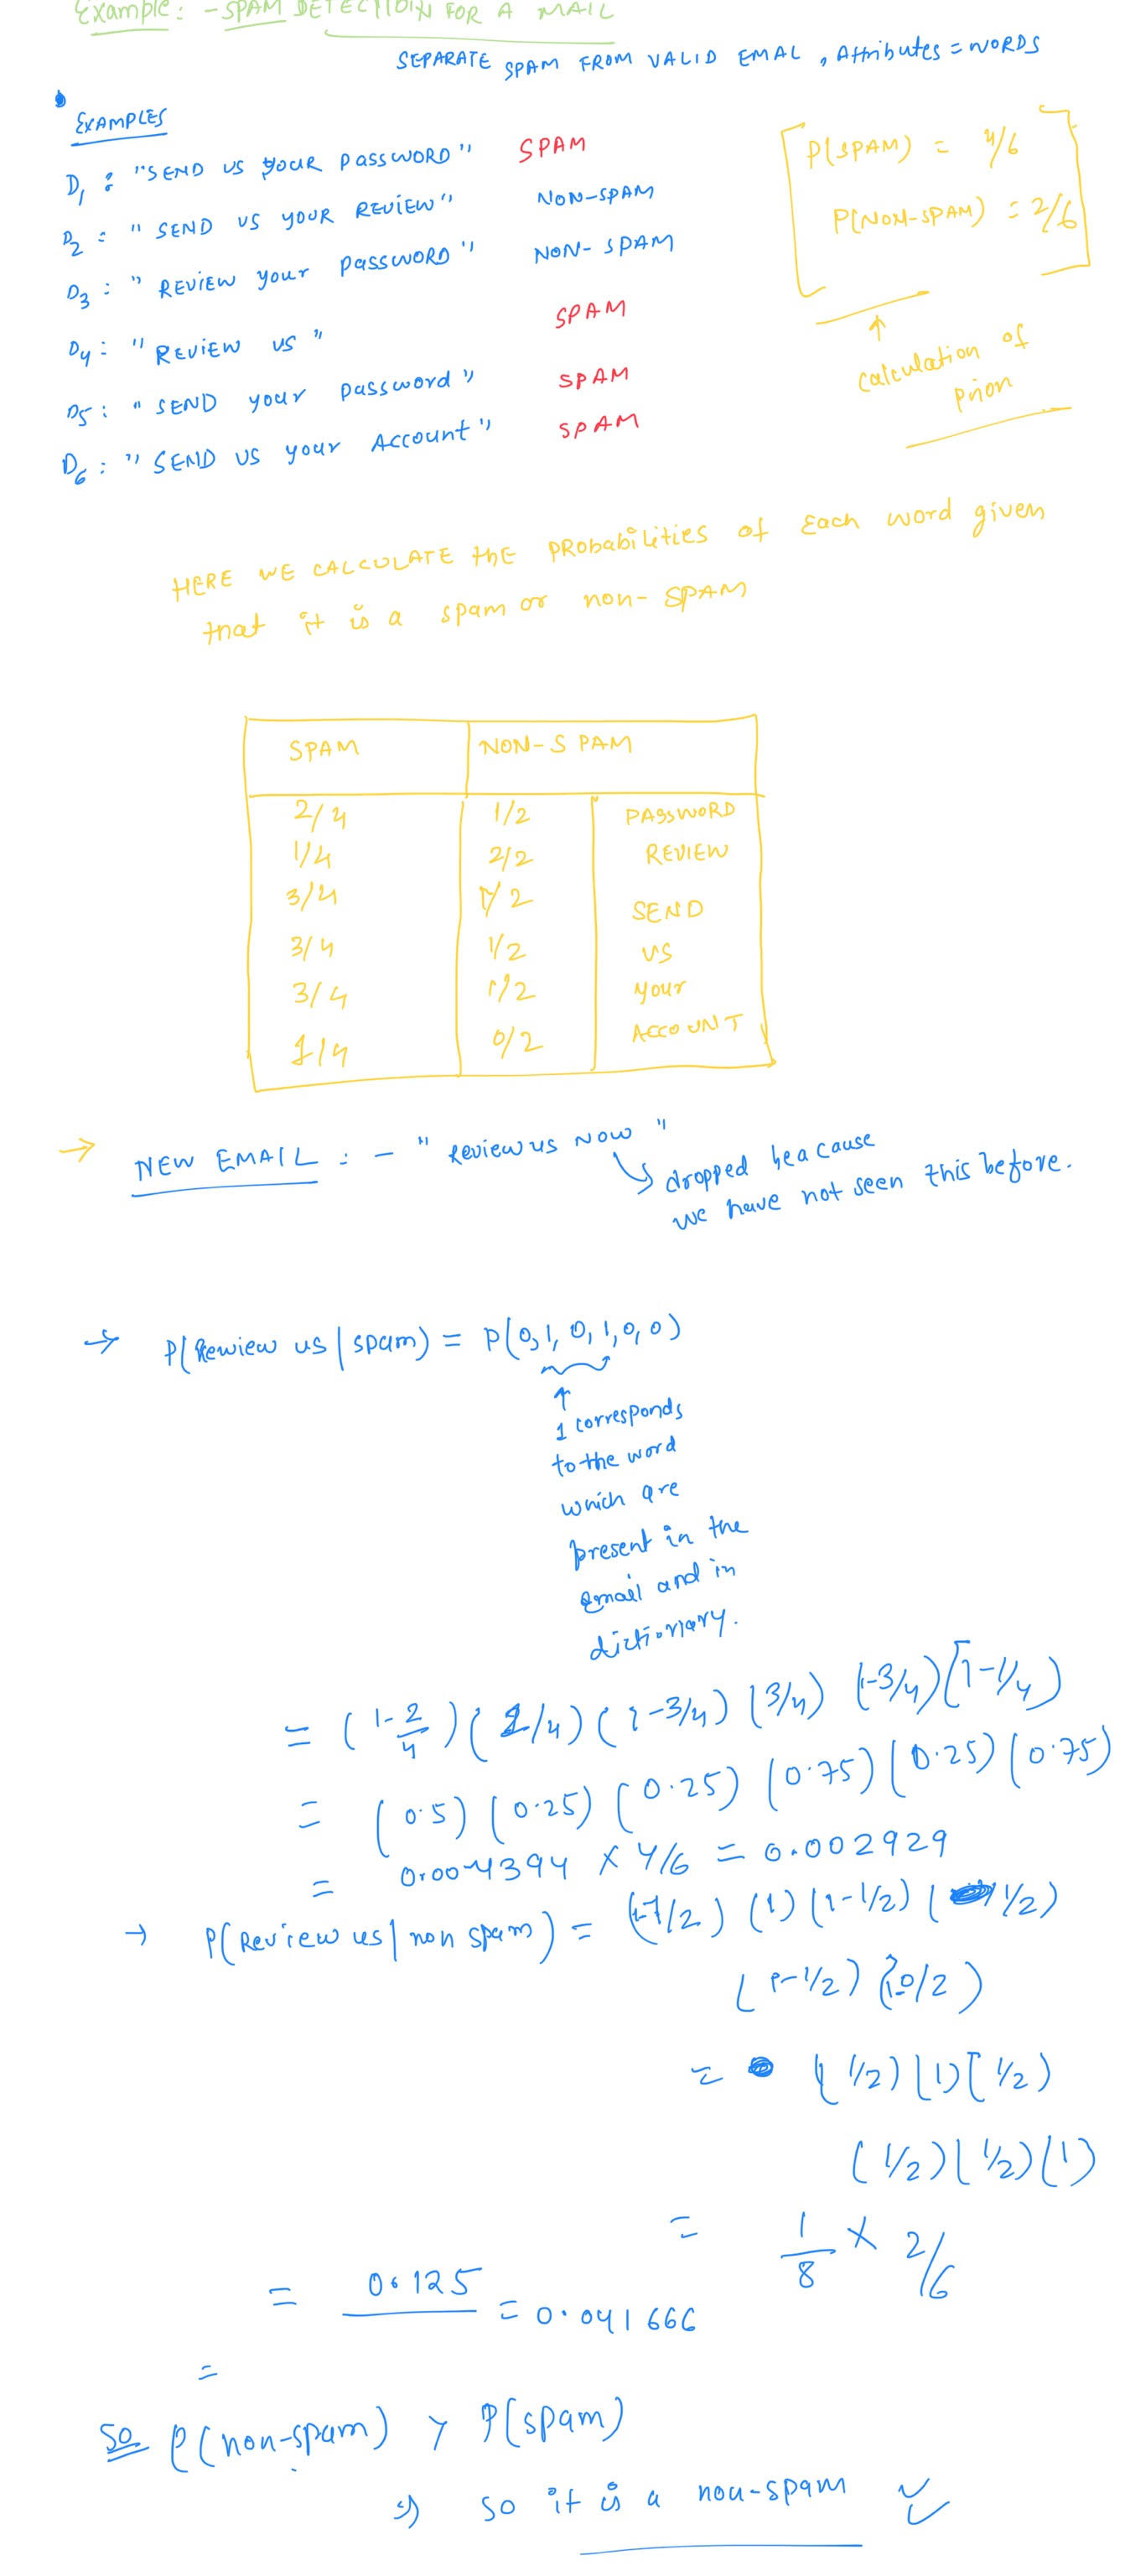 Example: - SPAM DETECTION FOR A MAIL
SEPARATE SPAM FROM VALID EMAL , Attributes = WORDS
EXAMPLES
D1 : "SEND US YOUR PASSWORD" SPAM
D2 : " SEND US YOUR REVIEW" NON-SPAM
D3 : " REVIEW your PASSWORD" NON-SPAM
D4 : " REVIEW US " SPAM
D5 : " SEND your password" SPAM
D6 : " SEND US your Account" SPAM
P(SPAM) = 4/6
P(NON-SPAM) = 2/6
↑
calculation of
prior
HERE WE CALCULATE thE PRObabilities of Each word given
that it is a spam or non-SPAM
SPAM NON-SPAM
2/4 1/2 PASSWORD
1/4 2/2 REVIEW
3/4 1/2 SEND
3/4 1/2 US
3/4 1/2 your
1/4 0/2 ACCOUNT
→ NEW EMAIL : - " Review us NOW "
dropped beacause
we have not seen this before.
→ P(Rewiew us | spam) = P(0,1,0,1,0,0)
↑
1 corresponds
to the word
which are
present in the
Email and in
dictionary.
= (1-2/4)(1/4)(1-3/4)(3/4)(1-3/4)(1-1/4)
= (0.5)(0.25)(0.25)(0.75)(0.25)(0.75)
= 0.004394 X 4/6 = 0.002929
→ P(Review us | non spam) = (1-1/2)(1)(1-1/2)(1/2)
(1-1/2)(1-0/2)
= (1/2)(1)(1/2)
(1/2)(1/2)(1)
= 1/8 X 2/6
= 0.125 = 0.041666
=
So P(non-spam) > P(spam)
⇒ so it is a non-spam